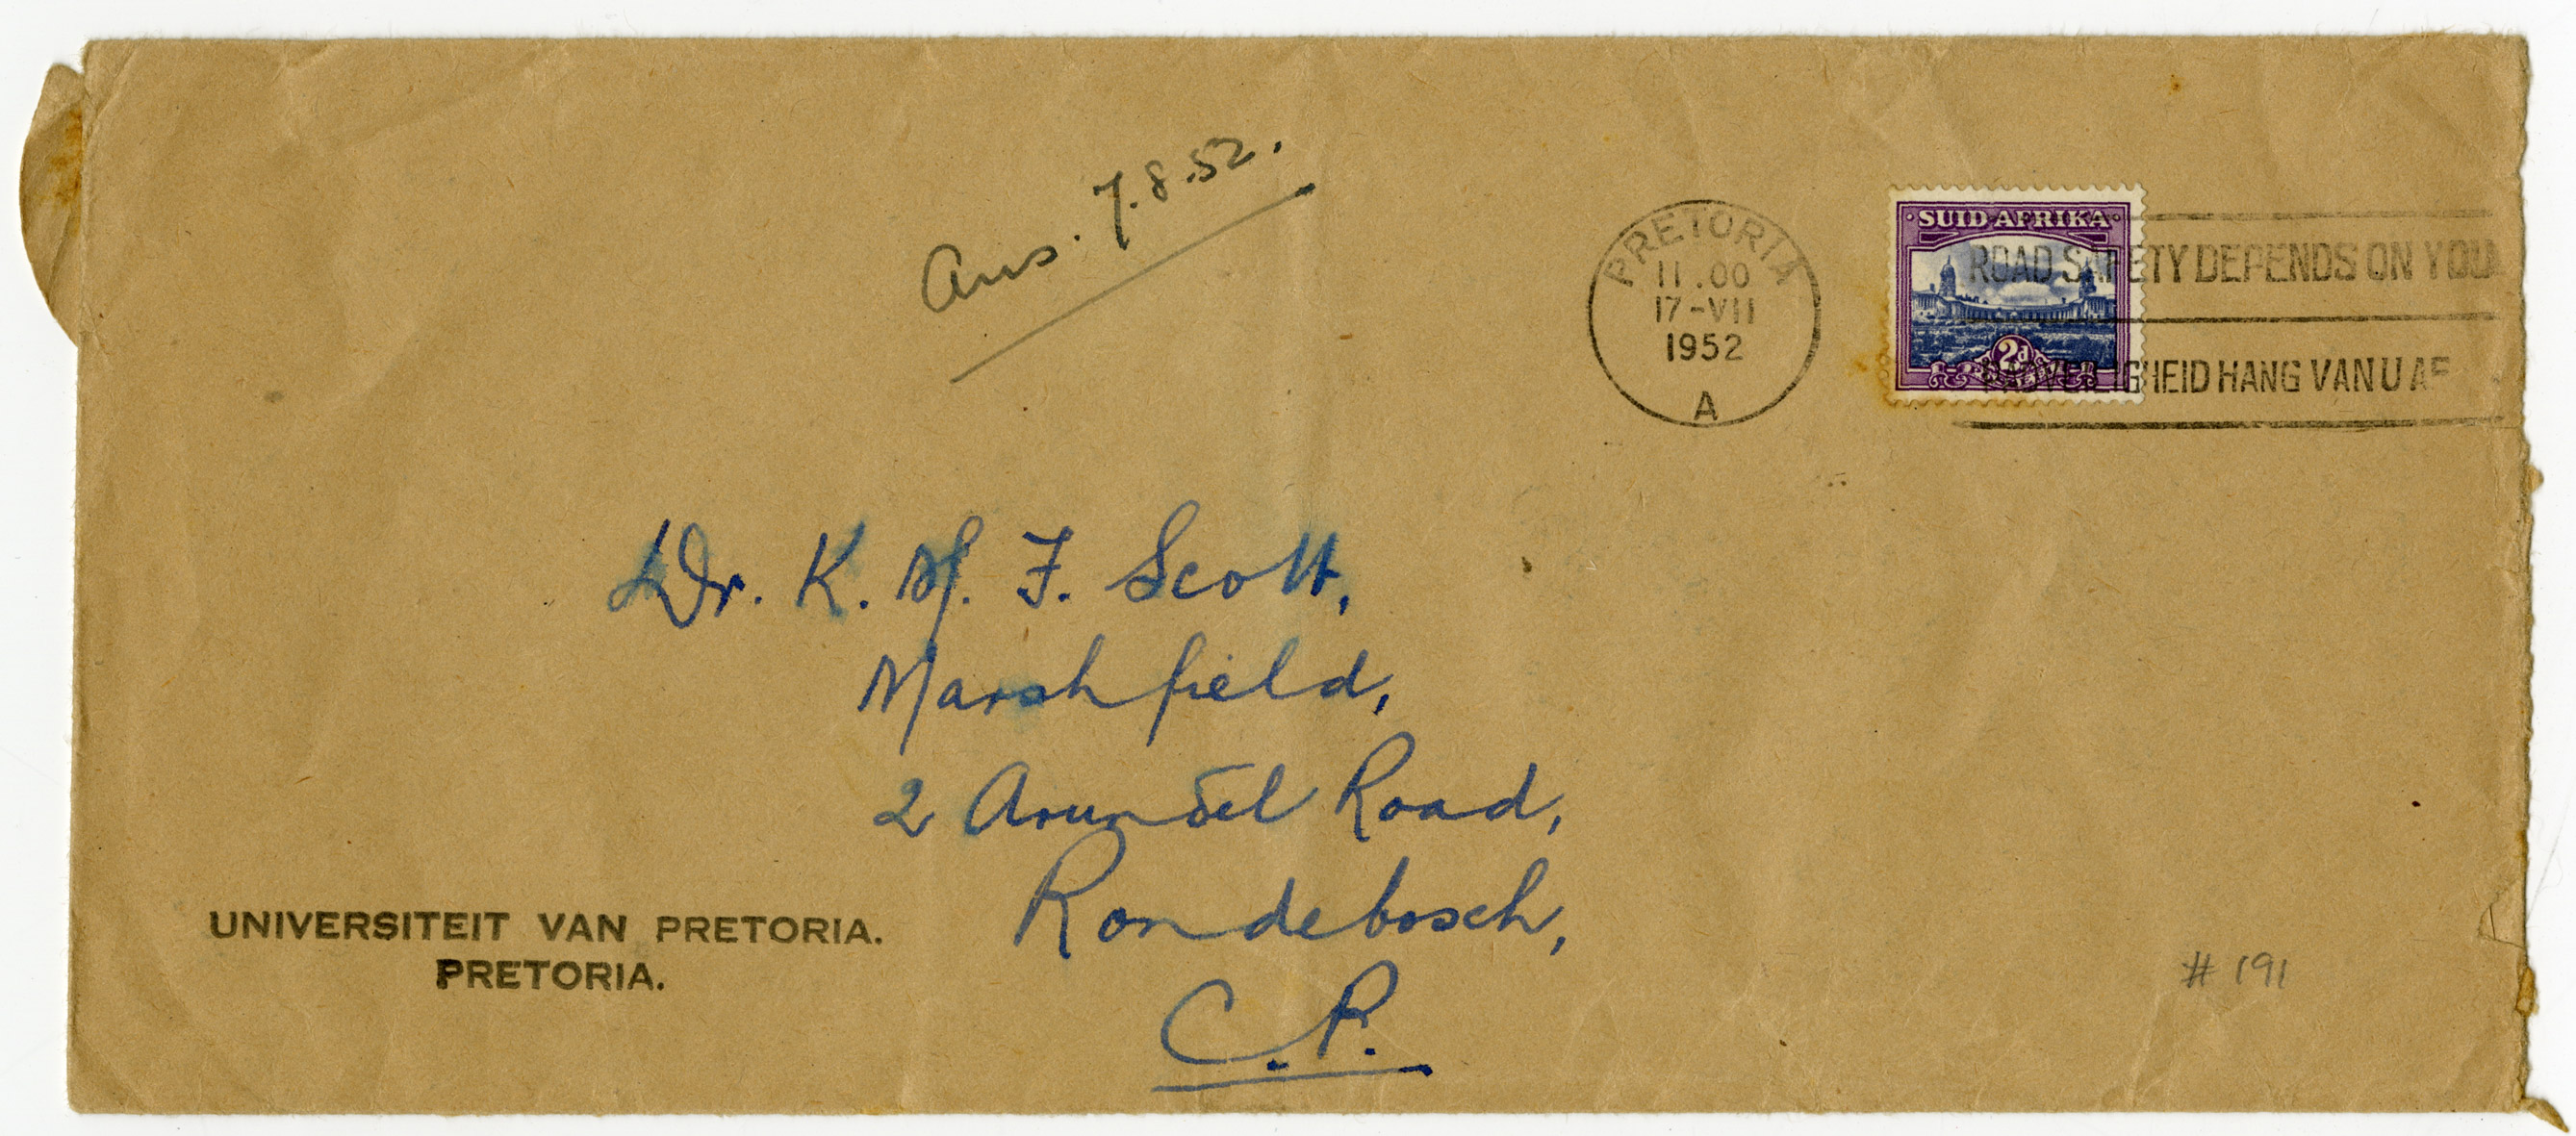 Ans. 7.8.52.
PRETORIA
11.00
17-VII
1952
A
SUID-AFRIKA
2d
ROAD SAFETY DEPENDS ON YOU
PADVEILIGHEID HANG VAN U AF
Dr. K. M. F. Scott,
Marshfield,
2 Arundel Road,
Rondebosch,
C.P.
UNIVERSITEIT VAN PRETORIA.
PRETORIA.
# 191